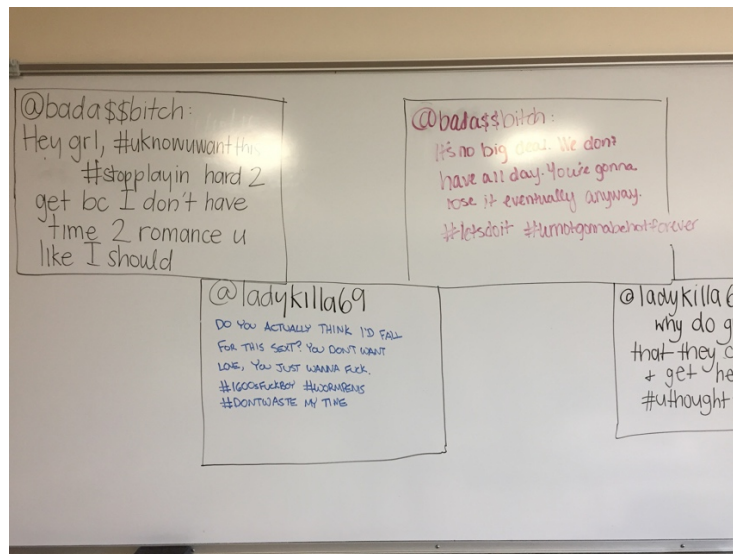 @bada$$bitch:
Hey grl, #uknowuwant this
#stopplayin hard 2
get bc I don't have
time 2 romance u
like I should
@bada$$bitch:
It's no big deal. We don't
have all day. You're gonna
lose it eventually anyway.
#letsdoit #urnotgonnabehotforever
@ladykilla69
DO YOU ACTUALLY THINK I'D FALL
FOR THIS SEXT? YOU DON'T WANT
LOVE, YOU JUST WANNA FUCK.
#1600sFUCKBOY #WORMPENIS
#DONTWASTE MY TIME
@ladykilla6
why do g
that they c
+ get he
#uthought